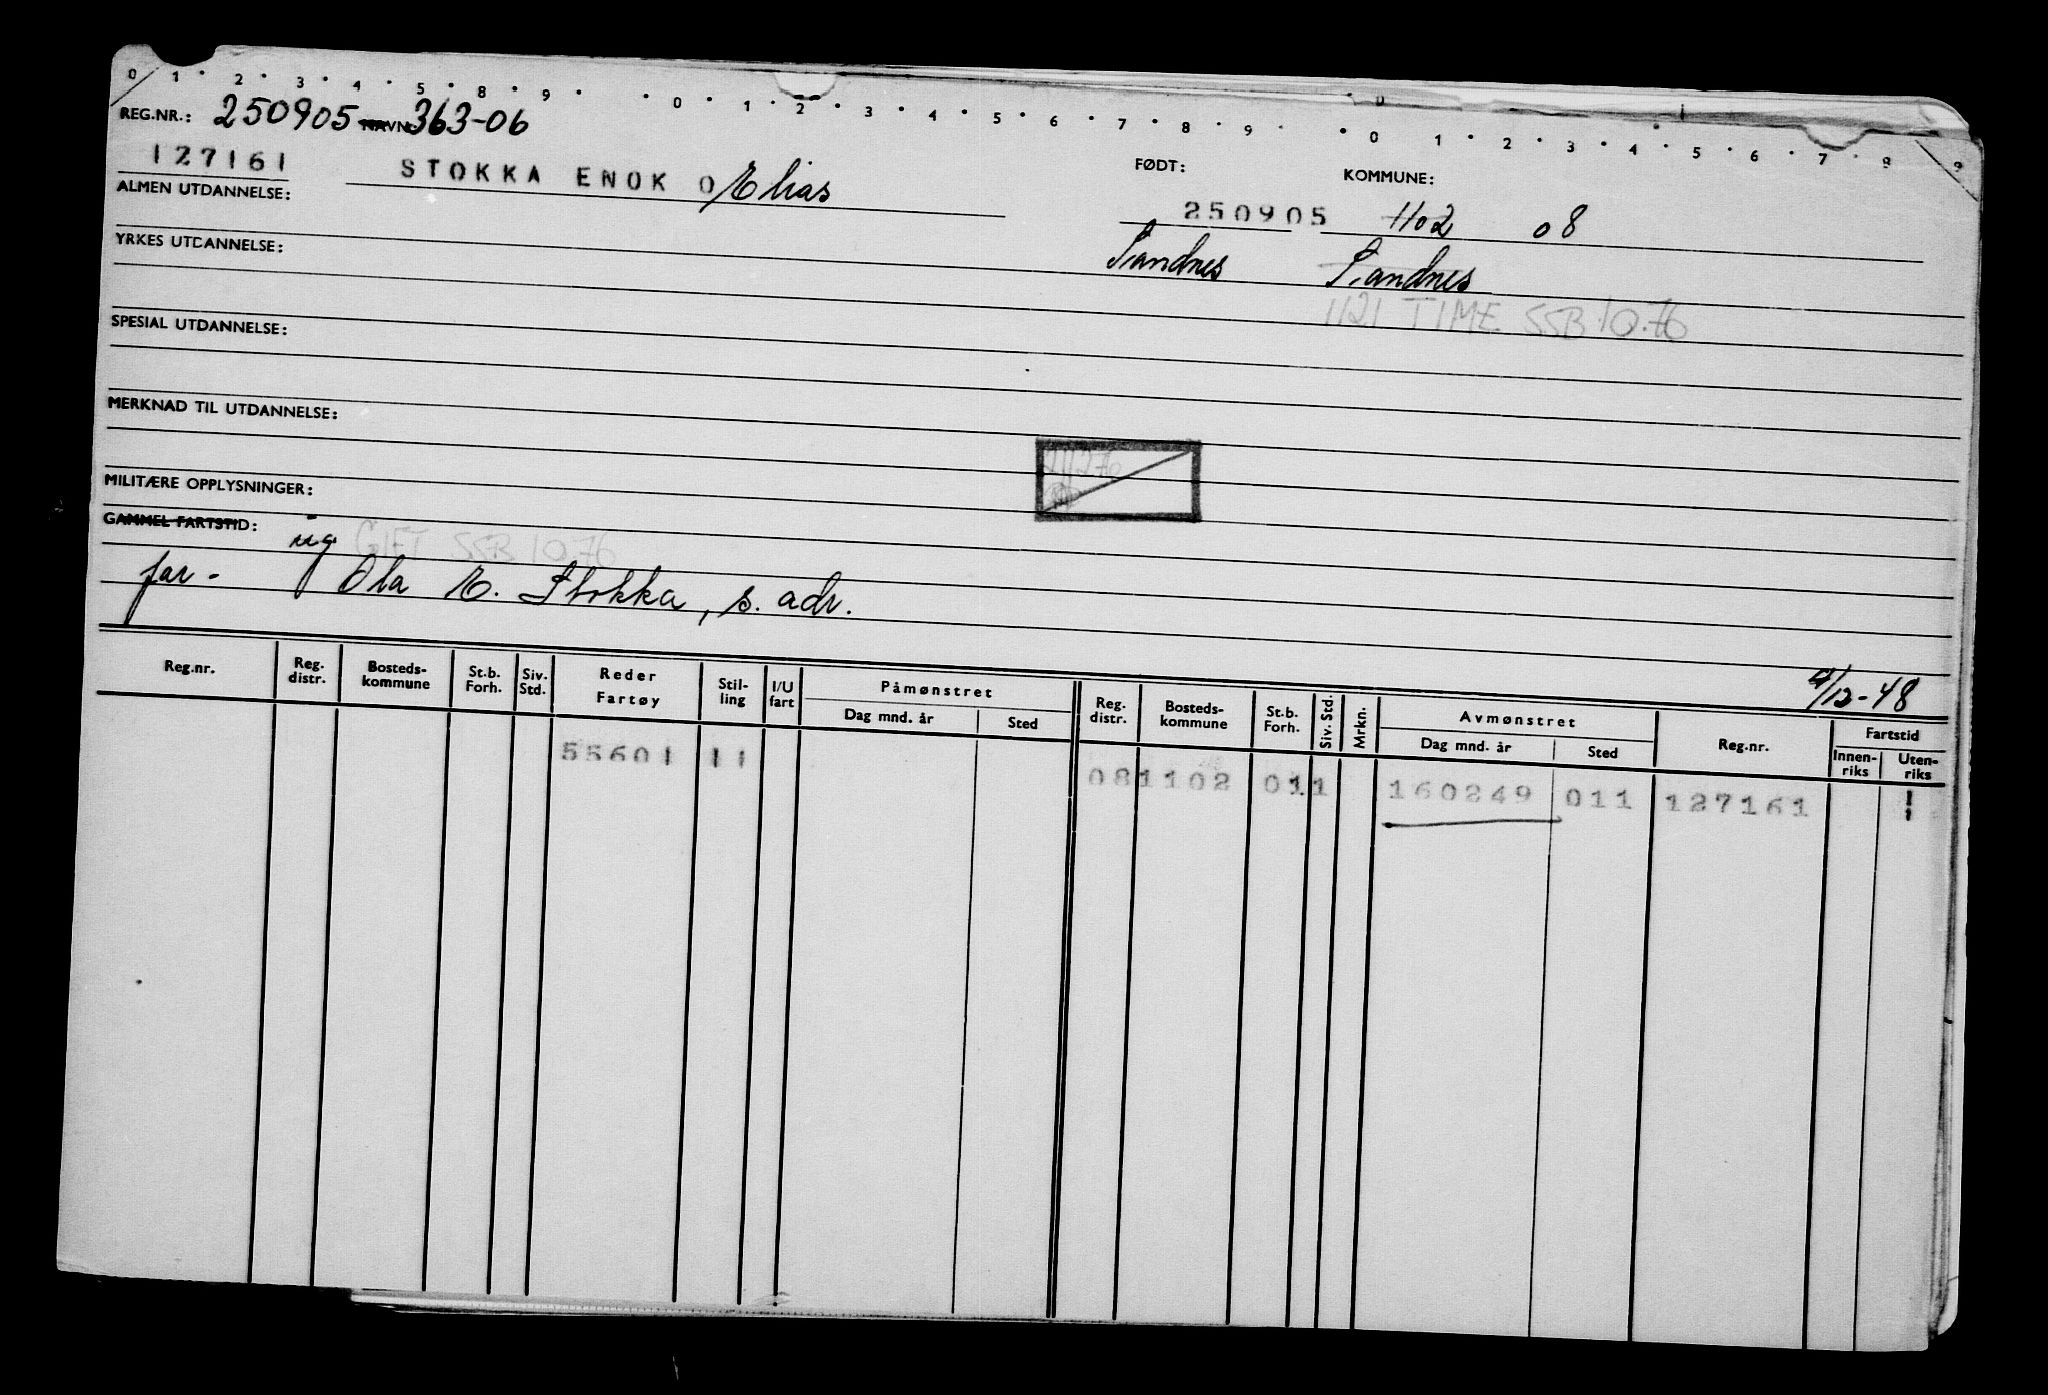 0 1 2 3 4 5 8 9 0 1 2 3 4 5 6 7 8 9 0 1 2 3 4 5 6 7 8 9
REG.NR.: 250905 NAVN 363-06
127161 STOKKA ENOK O Elias FØDT: KOMMUNE:
ALMEN UTDANNELSE: 250905 1102 08
YRKES UTDANNELSE: Sandnes Sandnes
1121 TIME SSB 10.76
SPESIAL UTDANNELSE:
MERKNAD TIL UTDANNELSE:
MILITÆRE OPPLYSNINGER:
GAMMEL FARTSTID: ug GIFT SSB 10.76
far - Ola E. Stokka, s. adr.
4/12-48
Reg.nr. Reg. distr. Bosteds-kommune St.b. Forh. Siv. Std. Reder Fartøy Stil-ling I/U fart Påmønstret Dag mnd. år Sted Reg. distr. Bosteds-kommune St.b. Forh. Siv. Std. Mrkn. Avmønstret Dag mnd. år Sted Reg.nr. Fartstid Innen-riks Uten-riks
55601 11 081102 011 160249 011 127161 1